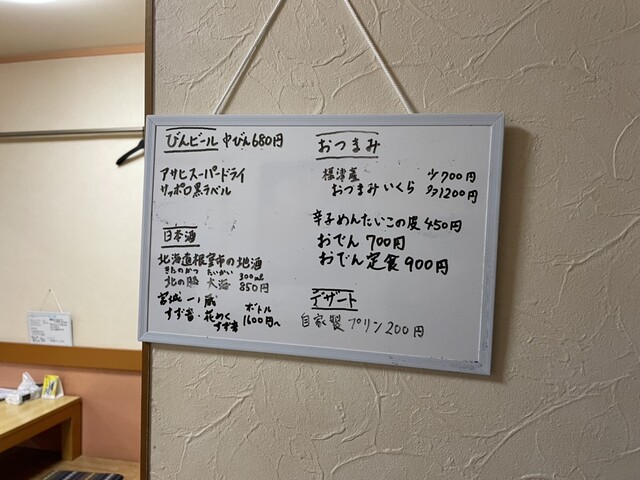 びんビール 中びん680円
アサヒスーパードライ
サッポロ黒ラベル
日本酒
北海道根室市の地酒
きたのかつ たいかい 300ml
北の勝 大海 850円
宮城 一ノ蔵 ボトル
すず音・花めくすず音 1600円〜
おつまみ
標津産 少700円
おつまみいくら 多1200円
辛子めんたいこの皮 450円
おでん 700円
おでん定食 900円
デザート
自家製プリン 200円